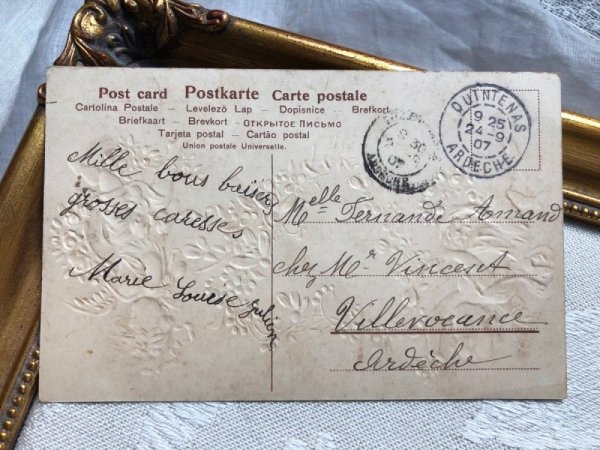 Post card Postkarte Carte postale
Cartolina Postale – Levelező Lap – Dopisnice – Brefkort
Briefkaart – Brevkort – ОТКРЫТОЕ ПИСЬМО
Tarjeta postal – Cartão postal
Union postale Universelle.
QUINTENAS
9 25
24 - 9
07
ARDÈCHE
07
Mille bons baisers
grosses caresses
Marie Louise
Melle Fernande Amand
chez Mr Vincent
Villevocance
Ardèche